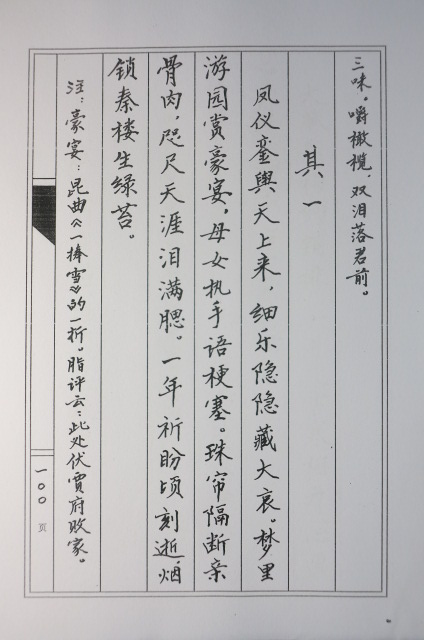 三味。嚼橄榄，双泪落君前。
其一
凤仪銮舆天上来，细乐隐隐藏大哀。梦里
游园赏豪宴，母女执手语梗塞。珠帘隔断亲
骨肉，咫尺天涯泪满腮。一年祈盼顷刻逝，烟
锁秦楼生绿苔。
注：豪宴：昆曲《一捧雪》的一折。脂评云：此处伏贾府败家。
一〇〇页